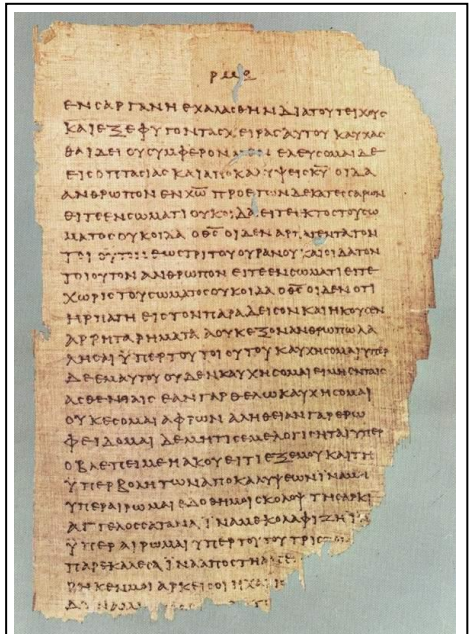 ρμϛ
ΕΝ ΣΑΡΓΑΝΗ ΕΧΑΛΑΣΘΗΝ ΔΙΑ ΤΟΥ ΤΕΙΧΟΥΣ
ΚΑΙ ΕΞΕΦΥΓΟΝ ΤΑΣ ΧΕΙΡΑΣ ΑΥΤΟΥ ΚΑΥΧΑΣ
ΘΑΙ ΔΕΙ ΟΥ ΣΥΜΦΕΡΟΝ ΜΕΝ ΕΛΕΥΣΟΜΑΙ ΔΕ
ΕΙΣ ΟΠΤΑΣΙΑΣ ΚΑΙ ΑΠΟΚΑΛΥΨΕΙΣ Κ̅Υ̅ ΟΙΔΑ
ΑΝΘΡΩΠΟΝ ΕΝ Χ̅Ω̅ ΠΡΟ ΕΤΩΝ ΔΕΚΑΤΕΣΣΑΡΩΝ
ΕΙΤΕ ΕΝ ΣΩΜΑΤΙ ΟΥΚ ΟΙΔΑ ΕΙΤΕ ΕΚΤΟΣ ΤΟΥ ΣΩ
ΜΑΤΟΣ ΟΥΚ ΟΙΔΑ Ο Θ̅Σ̅ ΟΙΔΕΝ ΑΡΠΑΓΕΝΤΑ ΤΟΝ
ΤΟΙΟΥΤΟΝ ΕΩΣ ΤΡΙΤΟΥ ΟΥΡΑΝΟΥ ΚΑΙ ΟΙΔΑ ΤΟΝ
ΤΟΙΟΥΤΟΝ ΑΝΘΡΩΠΟΝ ΕΙΤΕ ΕΝ ΣΩΜΑΤΙ ΕΙΤΕ
ΧΩΡΙΣ ΤΟΥ ΣΩΜΑΤΟΣ ΟΥΚ ΟΙΔΑ Ο Θ̅Σ̅ ΟΙΔΕΝ ΟΤΙ
ΗΡΠΑΓΗ ΕΙΣ ΤΟΝ ΠΑΡΑΔΕΙΣΟΝ ΚΑΙ ΗΚΟΥΣΕΝ
ΑΡΡΗΤΑ ΡΗΜΑΤΑ Α ΟΥΚ ΕΞΟΝ ΑΝΘΡΩΠΩ ΛΑ
ΛΗΣΑΙ ΫΠΕΡ ΤΟΥ ΤΟΙΟΥΤΟΥ ΚΑΥΧΗΣΟΜΑΙ ΥΠΕΡ
ΔΕ ΕΜΑΥΤΟΥ ΟΥΔΕΝ ΚΑΥΧΗΣΟΜΑΙ ΕΙ ΜΗ ΕΝ ΤΑΙΣ
ΑΣΘΕΝΙΑΙΣ ΕΑΝ ΓΑΡ ΘΕΛΩ ΚΑΥΧΗΣΟΜΑΙ
ΟΥΚ ΕΣΟΜΑΙ ΑΦΡΩΝ ΑΛΗΘΕΙΑΝ ΓΑΡ ΕΡΩ
ΦΕΙΔΟΜΑΙ ΔΕ ΜΗ ΤΙΣ ΕΜΕ ΛΟΓΙΣΗΤΑΙ ΥΠΕΡ
Ο ΒΛΕΠΕΙ ΜΕ Η ΑΚΟΥΕΙ ΤΙ ΕΞ ΕΜΟΥ ΚΑΙ ΤΗ
ΫΠΕΡΒΟΛΗ ΤΩΝ ΑΠΟΚΑΛΥΨΕΩΝ ΪΝΑ ΜΗ
ΥΠΕΡΑΙΡΩΜΑΙ ΕΔΟΘΗ ΜΟΙ ΣΚΟΛΟΨ ΤΗ ΣΑΡΚΙ
ΑΓΓΕΛΟΣ ΣΑΤΑΝΑ ΪΝΑ ΜΕ ΚΟΛΑΦΙΖΗ
ΫΠΕΡΑΙΡΩΜΑΙ ΥΠΕΡ ΤΟΥΤΟΥ ΤΡΙΣ
ΠΑΡΕΚΑΛΕΣΑ ΪΝΑ ΑΠΟΣΤΗ
ΡΗΚΕΝ ΜΟΙ ΑΡΚΕΙ ΣΟΙ Η ΧΑΡΙΣ